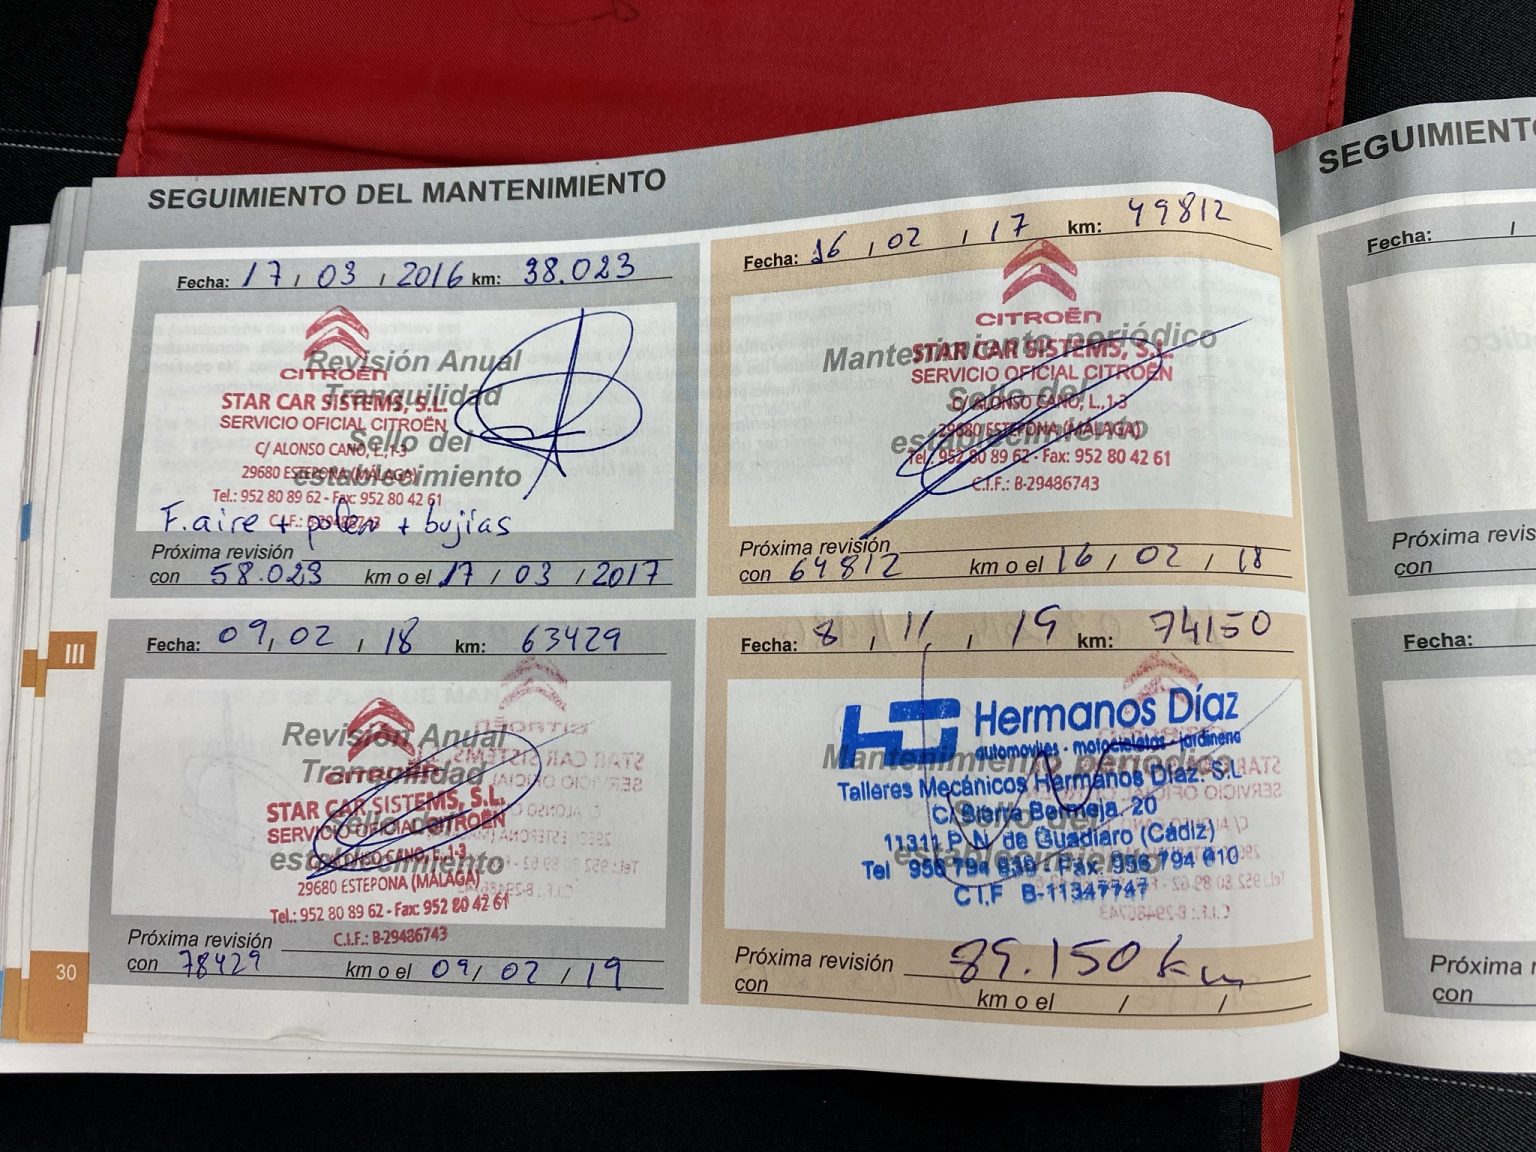 SEGUIMIENTO DEL MANTENIMIENTO
Fecha: 17 / 03 / 2016 km: 38.023
CITROËN
Revisión Anual
Tranquilidad
STAR CAR SISTEMS, S.L.
SERVICIO OFICIAL CITROËN
Sello del
C/ ALONSO CANO, L.,1-3
establecimiento
29680 ESTEPONA (MÁLAGA)
Tel.: 952 80 89 62 - Fax: 952 80 42 61
C.I.F.: B-29486743
F.aire + polen + bujías
Próxima revisión
con 58.023 km o el 17 / 03 / 2017
Fecha: 16 / 02 / 17 km: 49812
CITROËN
Mantenimiento periódico
STAR CAR SISTEMS, S.L.
SERVICIO OFICIAL CITROËN
Sello del
C/ ALONSO CANO, L.,1-3
establecimiento
29680 ESTEPONA (MÁLAGA)
Tel.: 952 80 89 62 - Fax: 952 80 42 61
C.I.F.: B-29486743
Próxima revisión
con 64812 km o el 16 / 02 / 18
Fecha: 09, 02 / 18 km: 63429
Revisión Anual
Tranquilidad
CITROËN
STAR CAR SISTEMS, S.L.
SERVICIO OFICIAL CITROËN
Sello del
C/ ALONSO CANO, L.,1-3
establecimiento
29680 ESTEPONA (MÁLAGA)
Tel.: 952 80 89 62 - Fax: 952 80 42 61
C.I.F.: B-29486743
Próxima revisión
con 78429 km o el 09 / 02 / 19
Fecha: 8 / 11 / 19 km: 74150
HD Hermanos Díaz
automoviles - motocicletas - jardineria
Mantenimiento periódico
Talleres Mecánicos Hermanos Díaz. S.L.
Sello del
C/ Sierra Bermeja, 20
11311 P. N. de Guadiaro (Cádiz)
establecimiento
Tel 956 794 830 - Fax 956 794 010
C.I.F B-11347747
Próxima revisión 89.150 km
con km o el / /
III
30
SEGUIMIENTO
Fecha: /
Próxima revis
con
Fecha:
Próxima r
con